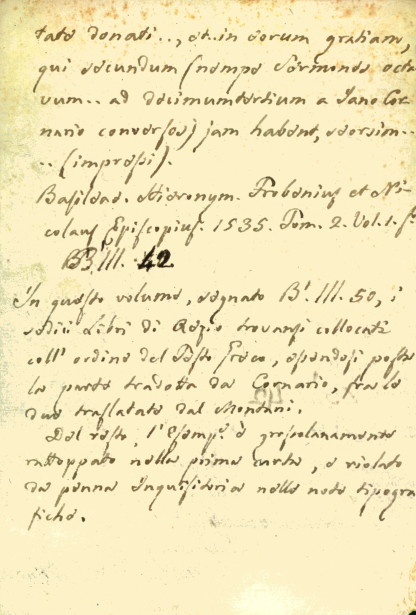 tate donati.., et in eorum gratiam,
qui secundum (nempe Sermones octa
vum.. ad decimumtertium a Jano Cor
nario conversos) jam habent, seorsim..
.. (impressi).
Basileae. Hieronym. Frobenius et Ni
colaus Episcopius. 1535. Tom. 2. Vol. 1. f.
BB. III. 42
In questo volume, segnato B. III. 50, i
sedici Libri di Aezio trovansi collocati
coll' ordine del Testo Greco, essendosi posta
la parte tradotta da Cornario, fra le
due traslatate dal Montani.
Del resto, l' Esemp. è grossolanamente
rattoppato nella prima carta, e violato
da penna Inquisitoria nelle note tipogra
fiche.